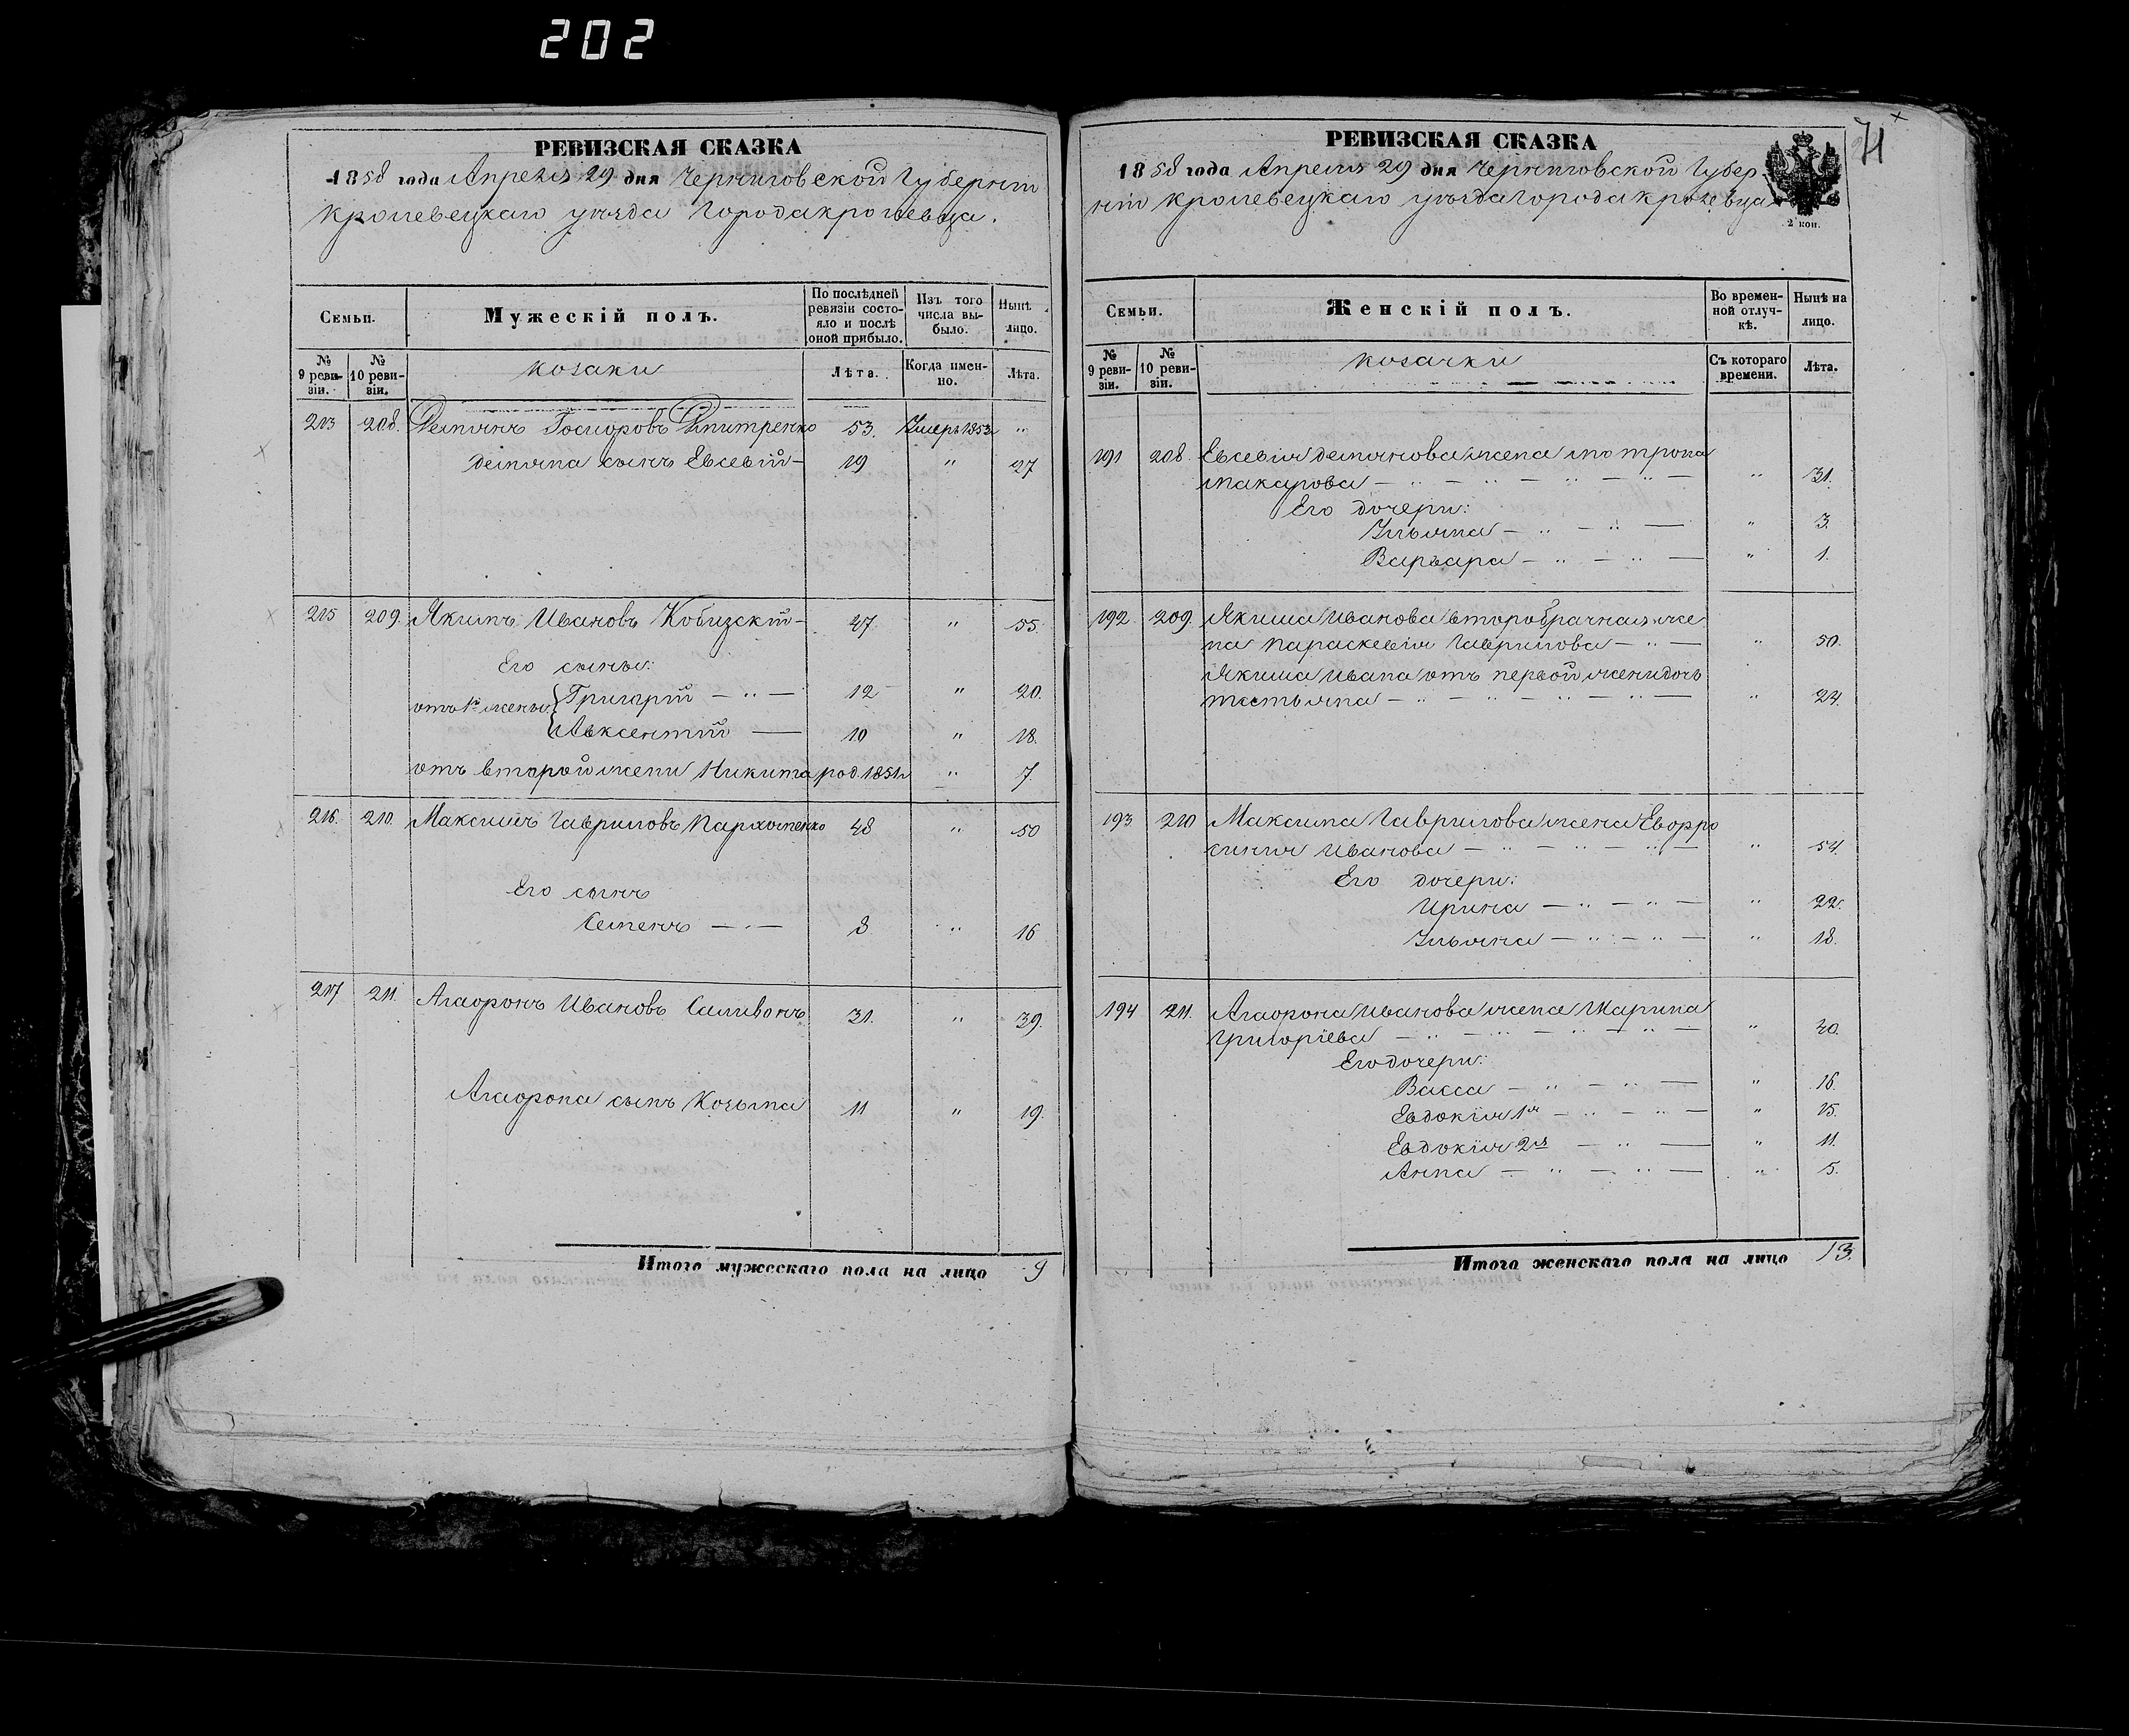 202
РЕВИЗСКАЯ СКАЗКА
1858 года Апреля 29 дня Черниговской Губернiи
Кролевецкаго уѣзда Города Кролевца.
Семьи.
Мужескiй полъ.
По послѣдней ревизiи состояло и послѣ оной прибыло.
Изъ того числа выбыло.
Нынѣ лицо.
№ 9 ревизiи.
№ 10 ревизiи.
козаки
Лѣта.
Когда именно.
Лѣта.
213 208. Демянъ Дмитренко 53. Умеръ 1853 "
Демяна сынъ Евсевiй 19 " 27
215 209. Якимъ Ивановъ Кобизскiй 47 " 55.
Его сыны:
отъ 1й жены Григорiй 12 " 20.
Авксентiй 10 " 18.
отъ второй жены Никита род. 1851 " 7.
216. 210. Максимъ Гавриловъ Пархоменко 48 " 50
Его сынъ
Семенъ 8 " 16
217 211. Агафонъ Ивановъ Саливонъ 31. " 39.
Агафона сынъ Козьма 11 " 19.
Итого мужескаго пола на лицо 9
71
РЕВИЗСКАЯ СКАЗКА
1858 года Апреля 29 дня Черниговской Губер-
нiи Кролевецкаго уѣзда Города Кролевца
2 коп.
Семьи.
Женскiй полъ.
Во временной отлучкѣ.
Нынѣ на лицо.
№ 9 ревизiи.
№ 10 ревизiи.
козачки
Съ котораго времени.
Лѣта.
191 208. Евсевiя Демянова жена Митрона
Макарова " 31.
Его дочери:
Ульяна " 3.
Варвара " 1.
192. 209. Якима Иванова второбрачная же
на Параскевiя Гаврилова " 50.
Якима Ивана отъ первой жени дочь
Татьяна " 24.
193. 210 Максима Гаврилова жена Евфро
синия Иванова " 54.
Его дочери:
Ирина " 22.
Ульяна " 18.
194 211. Агафона Иванова жена Марина
Григорiева " 40.
Его дочери:
Васса " 16.
Евдокiя 1я " 15.
Евдокiя 2я " 11.
Анна " 5.
Итого женскаго пола на лицо 13.